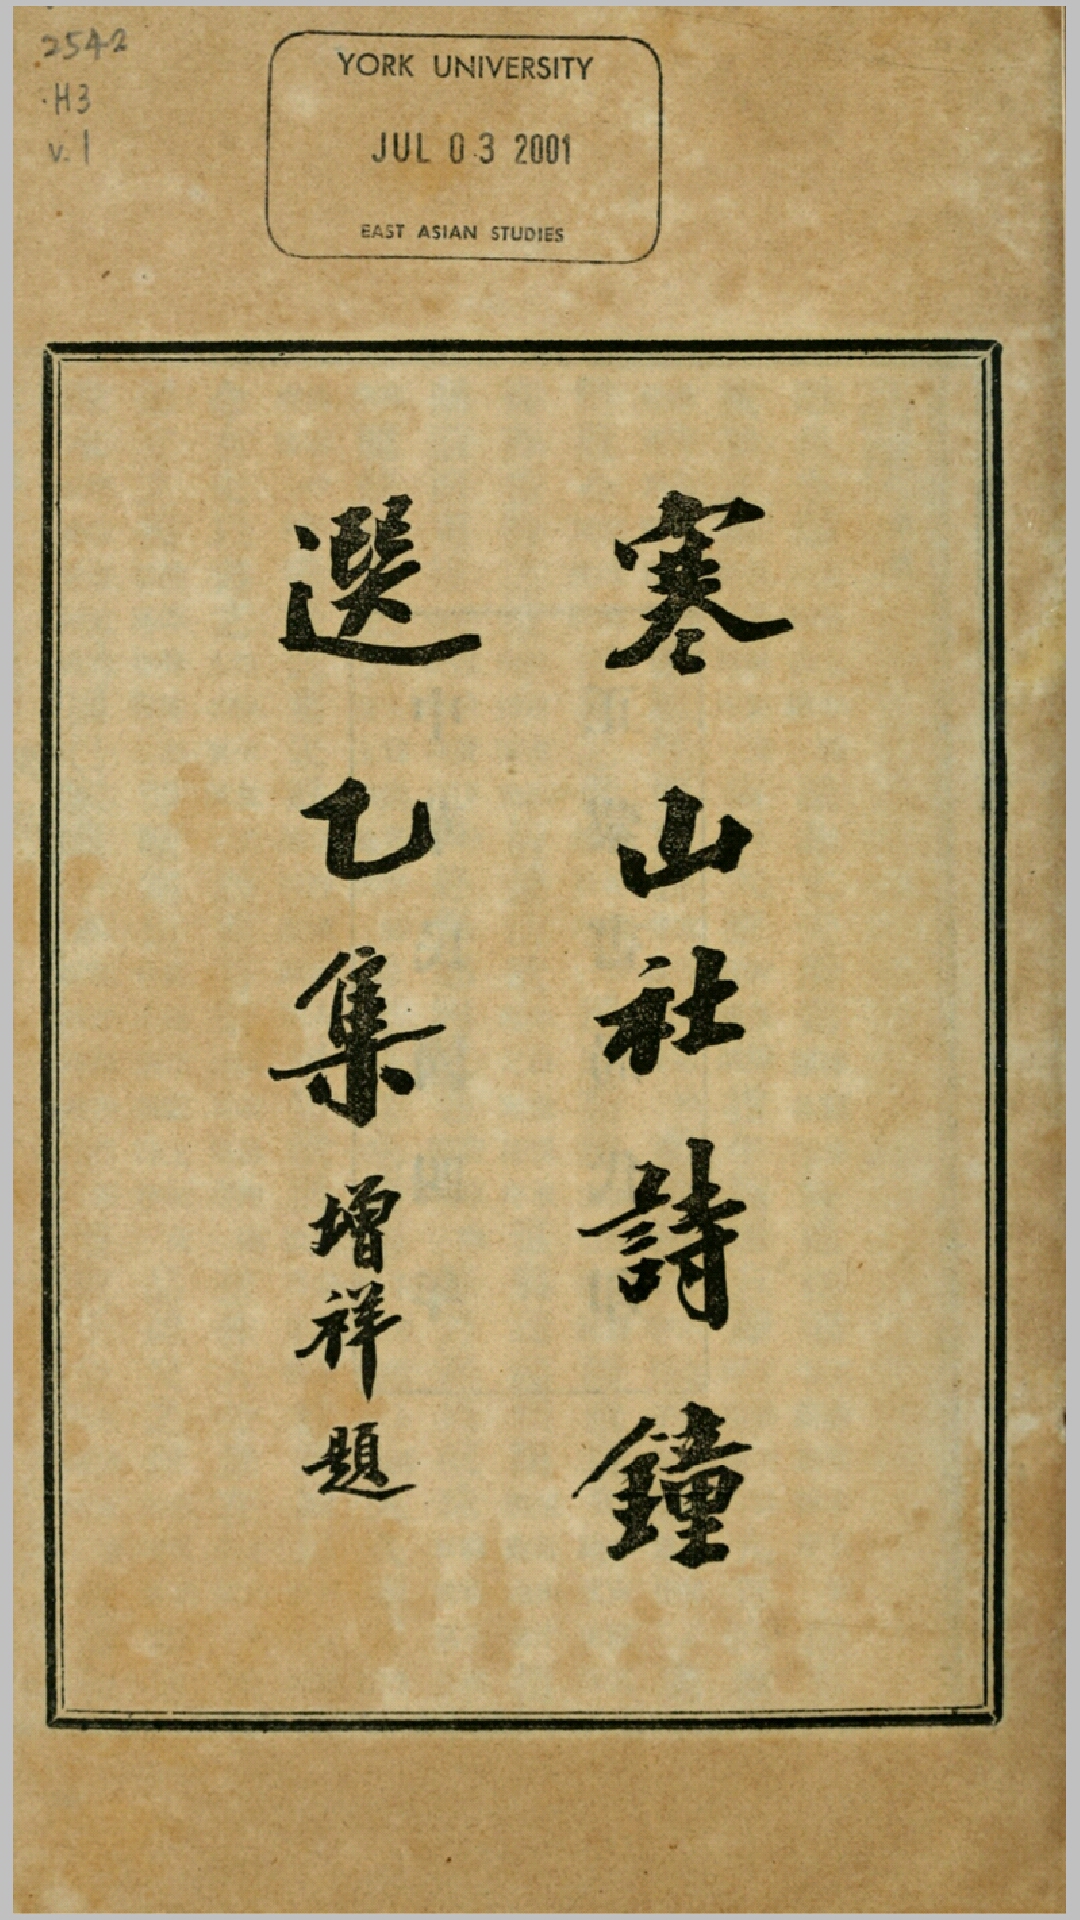 2542
H3
v.1
YORK UNIVERSITY
JUL 03 2001
EAST ASIAN STUDIES
寒山社詩鐘
選乙集 增祥題